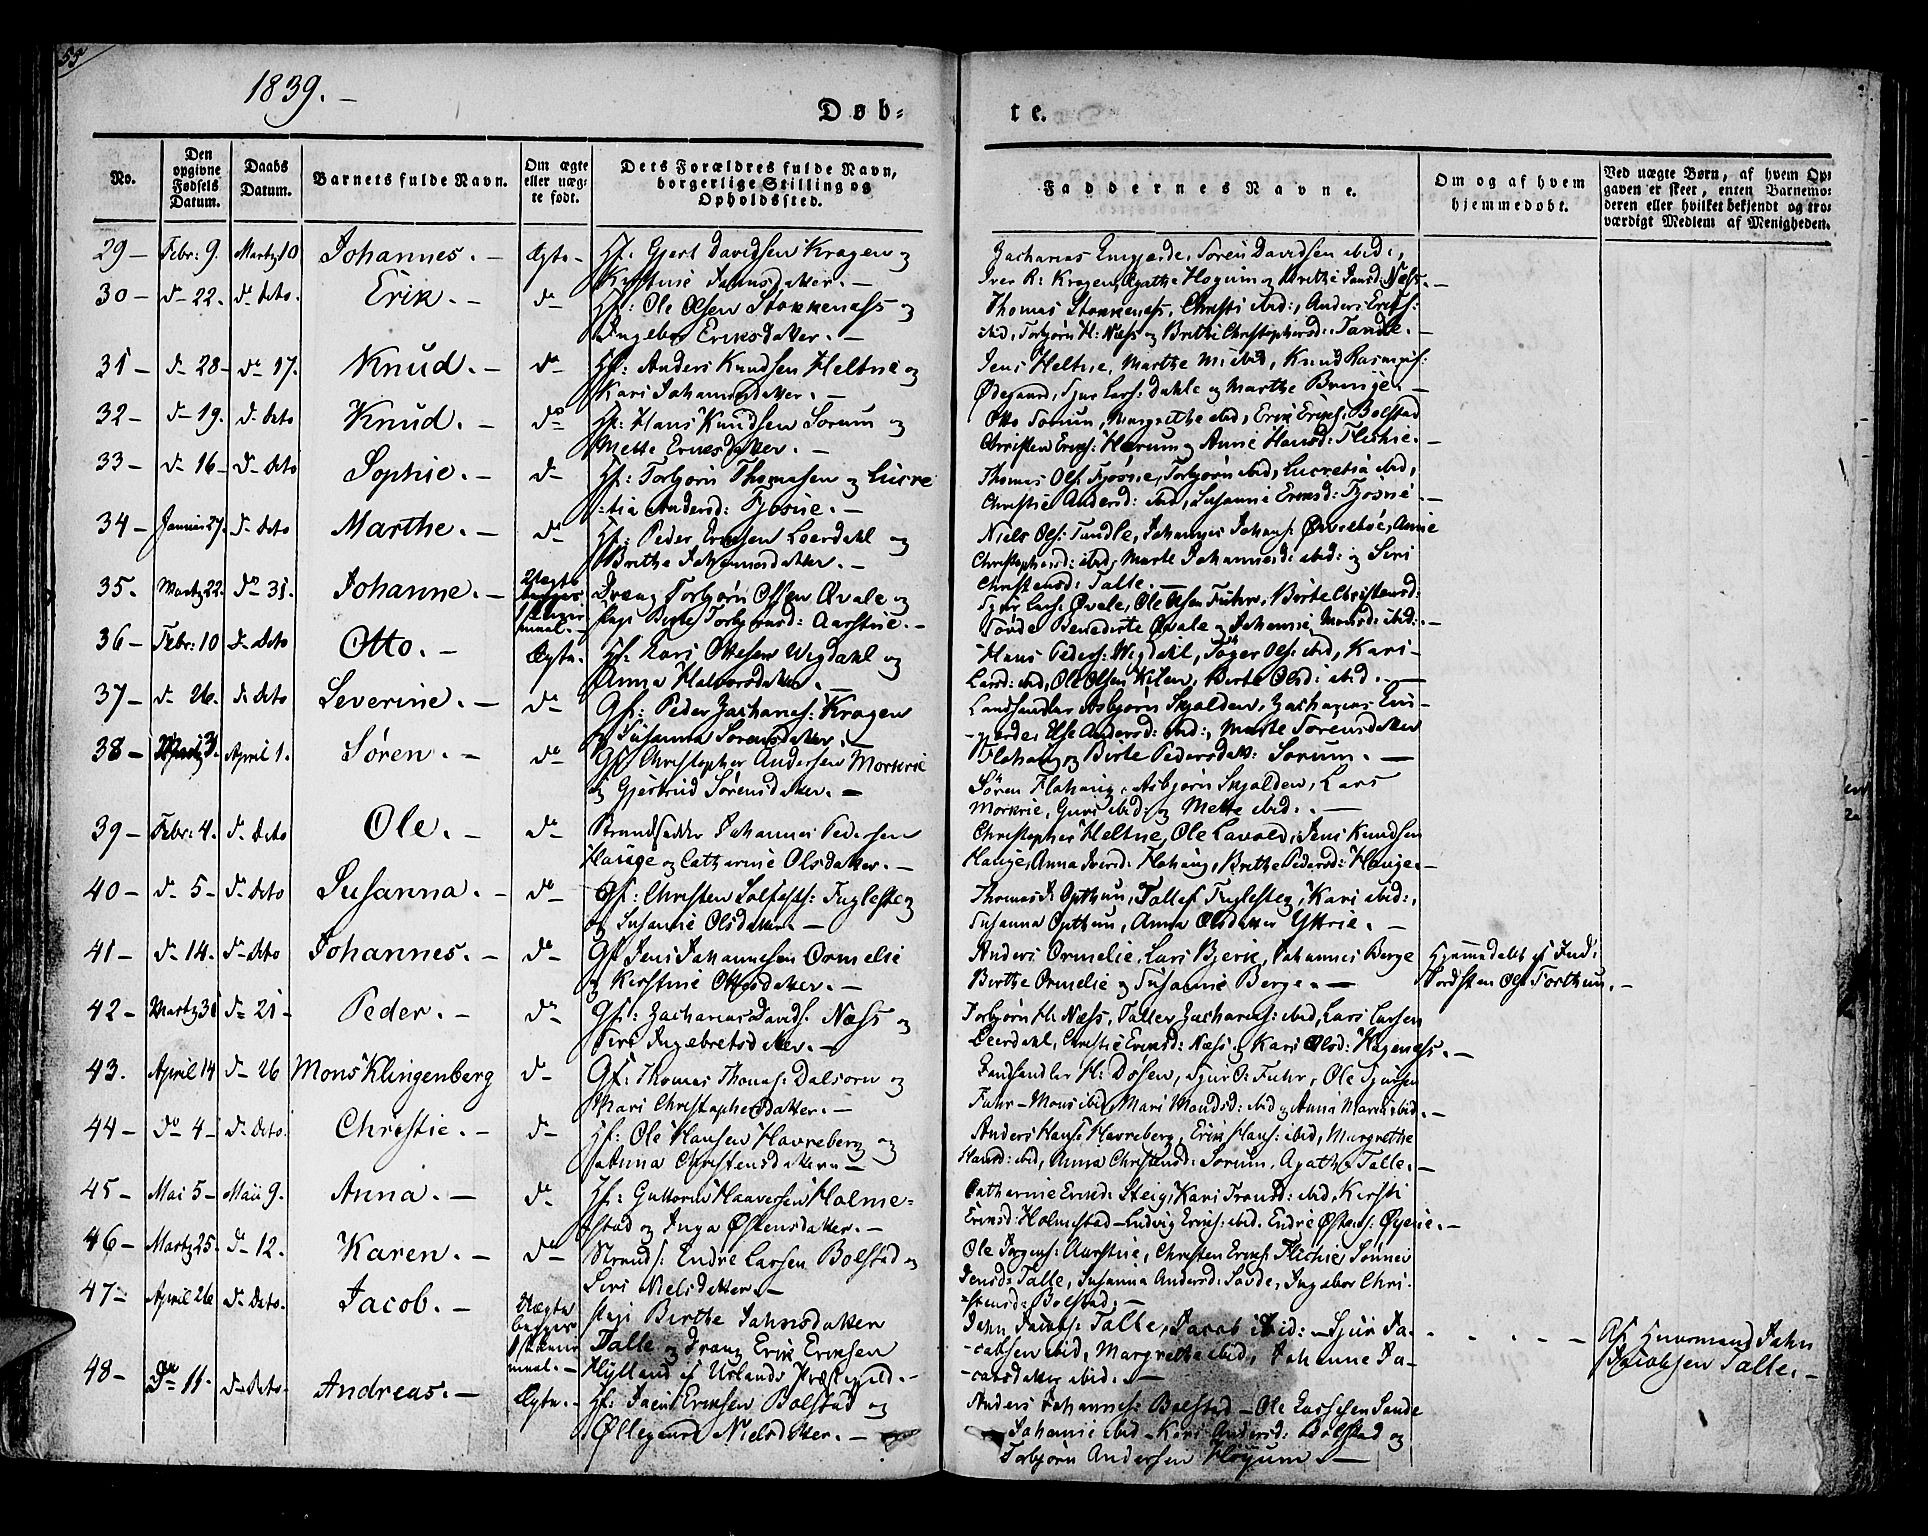 55
1839. -
Døb-
te.
No.
Den opgivne Fødsels Datum.
Daabs Datum.
Barnets fulde Navn.
Om ægte eller uægte født.
Dets Forældres fulde Navn, borgerlige Stilling og Opholdssted.
Faddernes Navne.
Om og af hvem hjemmedøbt.
Ved uægte Børn, af hvem Opgaven er skeet, enten Barnemoderen eller hvilket bekjendt og troværdigt Medlem af Menigheden.
29 - Febr: 9. Martz 10 Johannes. - Ægte - Hf: Gjert Davidsen Kragen og
Kirstine Jahnsdatter. -
Zacharias Engjerde, Søren Davidsen ibid:,
Iver R: Kragen, Agathe Høgum og Brithe Jansd: Næss. -
30 - d- 22. d- deto. Erik. - do Hf: Ole Olsen Stokkenæss og
Ingebor Eriksdatter. -
Thomas Stokkenæss, Christi ibid:, Anders Eriks:
ibid, Torbjørn H: Næss og Brithe Christophersd: Tandle. -
31 - d- 28 - do 17. Knud. - do Hf: Anders Knudsen Heltne og
Kari Johannesdatter. -
Jens Heltne, Marthe M: ibid, Knud Rasmus:
Ødegaard, Sjur Lars: Dahle og Marthe Bringe. -
32 - d- 19. d- deto Knud. - do Hf: Hans Knudsen Sorum og
Mette Eriksdatter. -
Otto Sorum, Margrethe ibid, Erik Eriks: Bolstad
Christen Eriks: Hærum og Anne Hansd: Flickie. -
33 - d- 16 - d- deto Sophie. - d- Hf: Torbjørn Thomasen og Lucre
-tia Andersd: Fjøsne. -
Thomas Ols: Fjøsne, Torbjørn ibid, Lucretia ibid,
Christie Andersd: ibid, Susanne Eriksd: Fjøsne. -
34 - Januar 27. d- deto Marthe. - do Hf: Peder Eriksen Leerdahl og
Brithe Johannesdatter. -
Niels Ols: Tandle, Johannes Johans: Ørvelbøe, Anne
Christophersd: ibid, Marte Johannesd: ibid: og Siri
Christensd: Talle. -
35. Martz 22. do 31. Johanne. - Uægte begges 1ste Leiermaal. - Dreng Torbjørn Olsen Qvale og
Pige Birte Torbjørnsd: Aarstue. -
Sjur Lars: Qvale, Ole Olsen Fuhr, Birte Christensd:
Tørde Benedicte Qvale og Johanne Monsd: ibid: -
36 - Febr: 10 d- deto Otto. - Ægte. Hf: Lars Ottesen Wigdahl og
Anna Halvorsdatter. -
Hans Peders: Wigdahl, Tøger Ols: ibid, Kari -
Larsd: ibid, Ole Olsen Kilen, Birte Olsd: ibid. -
37 - d- 26. d- deto Severine. - do Gf: Peder Zacharies: Kragen
og Susanna Sorensdatter. -
Landhandler Asbjørn Skjolden, Zacharias En-
-gjerde, Else Andersd: ibid:, Marte Sorensdatter
Flohaug og Birte Pedersdatt: Sorum. -
38 - April 1. Søren. - do Gf: Christopher Andersen Morkrie
og Gjertrud Sørensdatter. -
Søren Flohaug, Asbjørn Skjolden, Lars
Morkrie, Guri ibid: og Mette ibid. -
39 - Febr: 4. d- deto Ole. - do Strandsidder Johannes Pedersen
Hauge og Catharine Olsdatter. -
Christopher Heltne, Ole Lavold, Jens Knudsen
Hauge, Anna Iversd: Flohaug, Brithe Pedersd: Hauge. -
40 - do 5 - do deto Susanna. - do Gf: Christen Solfests: Fuglesteg
og Susanne Olsdatter. -
Thomas J: Opthun, Tollef Fuglesteg, Kari ibid:,
Susanna Opthun, Anna Olsdatter Yttrie. -
41 - do 14. do deto Johannes. - do Gf Jens Johannesen Ormelie
og Kirstine Ottesdatter. -
Anders Ormelie, Lars Bjerk, Johannes Berge
Birthe Ormelie og Susanne Berge. -
Hjemmedøbt af Ind:
Tordsten Ols: Forthun. -
42 - Martz 31 do 21 - Peder. - do Gf: Zacharias Davids: Næss og
Siri Ingebretsdatter. -
Torbjørn H: Næss, Tallev Zacharies: ibid, Lars Larsen
Leerdahl, Christie Eriksd: Næss, og Kari Olsd: Hagenæss. -
43. April 14 d- 26 Mons Klingenberg d- Gf: Thomas Thomas: Dalsøren og
Mari Christophersdatter. -
Landhandler H: Dosen, Sjur O: Fuhr, Ole Sjursen
Fuhr - Mons ibid, Mari Monsd: ibid og Anna Marie ibid. -
44 - do 4 - d- deto. Christie. - d- Hf: Ole Hansen Havreberg og
Anna Christensdatter -
Anders Hans: Havreberg, Erik Hans: ibid, Margrethe
Hansd: ibid, Anna Christensd: Sorum, Agathe Talle. -
45 - Mai 5 - Maii 9. Anna. - do Hf: Guttorm Haaversen Holme-
stad og Inga Østensdatter. -
Catharine Eriksd: Steig, Kari Tronsd: ibid, Kirsti
Eriksd: Holmestad - Ludvig Eriks: ibid. Endre Østens: Øyene. -
46 - Martz 25. d- 12. Karen. - do Strands: Endre Larsen Bolstad og
Siri Nielsdatter. -
Ole Jørgens: Aarstue, Christen Eriks: Flickie, Sønnev
Jensd: Talle, Susanna Andersd: Sovde, Ingebor Chri-
-stensd: Bolstad. -
47 - April 26 d- deto. Jacob. - Uægte begges 1ste Leiermaal. - Pige Birthe Jahnsdatter
Talle og Dreng Erik Eriksen
Hylland af Urlands Præstegield. -
Jahn Jacobs: Talle, Jacob ibid: - Sjur Ja-
-cobsen ibid, Margrethe ibid, Johanne Ja-
-cobsdatter ibid. -
Af Huusmand Jahn
Jacobsen Talle. -
48 - do 11. d- deto. Andreas. - Ægte. - Hf: Jacob Eriksen Bolstad og
Øllegaard Nielsdatter. -
Anders Johannes: Bolstad - Ole Lassesen Sande
Johanne ibid - Kari Andersd: Bolstad og
Torbjørn Andersen Høyum. -